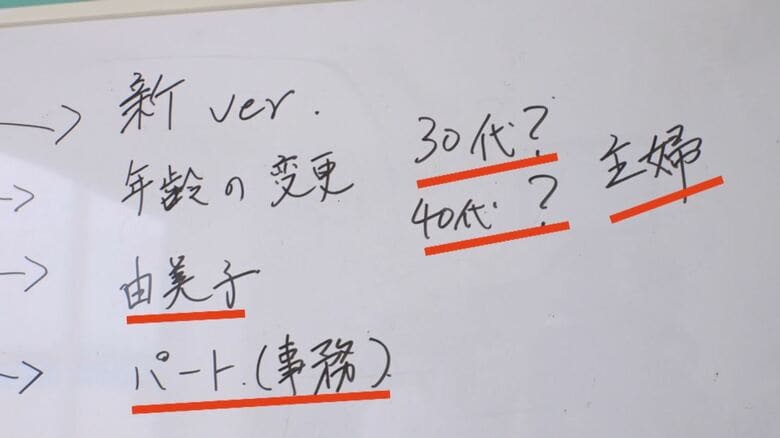 新 ver.
年齢の変更
30代?
40代?
主婦
由美子
パート.(事務)